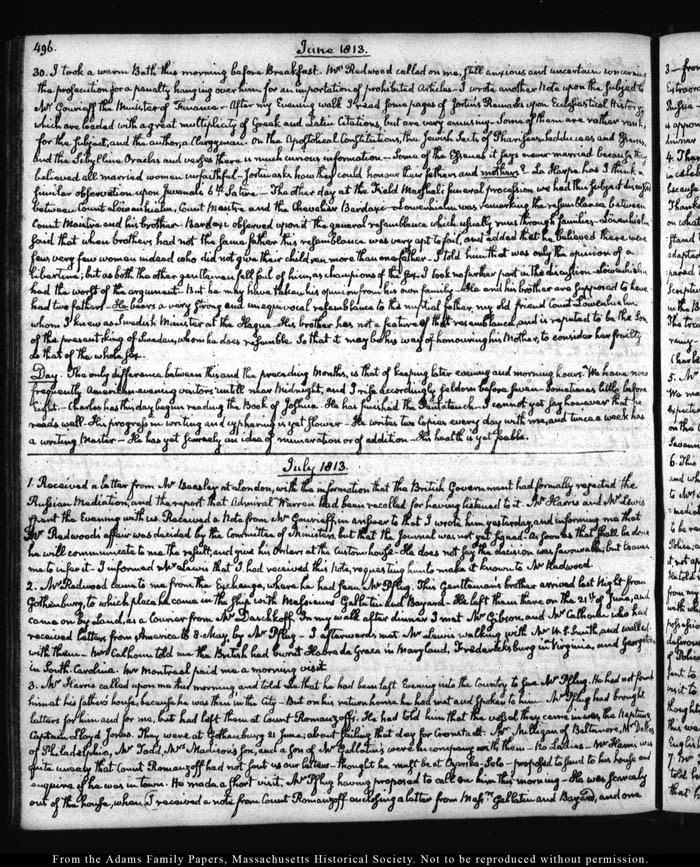 496.
June 1813.
30. I took a warm Bath this morning before Breakfast. Mr Redwood called on me, still anxious and uncertain concerning
the prosecution for a penalty hanging over him, for an importation of prohibited Articles. I wrote another Note upon the subject to
Mr Gourieff the Minister of Finance. After my Evening walk I read some pages of Jortin's Remarks upon Ecclesiastical History
which are loaded with a great multiplicity of Greek and Latin Citations, but are very amusing. Some of them are rather
for the subject, and the author, a Clergyman. On the Apostolical Constitutions, the Jewish Sects of Pharisees, Sadducees and Essenes,
and the Sibylline Oracles and verses there is much curious information. Some of the Essenes it says never married because they
believed all married women unfaithful. Jortin asks how they could honour their fathers and mothers? La Harpe has I think a
similar observation upon Juvenal's 6th Satire. The other day at the Field Marshal's funeral procession we had this subject discussed
between Count Löwenhielm, Count Maistre and the Chevalier Bardaxi. Löwenhielm was remarking the resemblance between
Count Maistre and his brother. Bardaxi observed upon it the general resemblance which usually runs through families. Löwenhielm
said that when brothers had not the same father this resemblance was very apt to fail, and added that he believed there were
few, very few women indeed who did not give their children more than one father. I told him that was only the opinion of a
libertine; but as both the other gentlemen fell foul of him, as champions of the sex, I took no further part in the discussion. Löwenhielm
had the worst of the argument. But he may have taken his opinion from his own family. He and his brother are supposed to have
had two fathers. He bears a very strong and unequivocal resemblance to the nuptial father, my old friend Count Löwenhielm
whom I knew as Swedish Minister at the Hague. His brother has not a feature of that resemblance, and is reputed to be the Son
of the present king of Sweden, whom he does resemble. So that it may be his way of honouring his Mother, to consider her frailty
as that of the whole sex.
Day. The only difference between this and the preceding Months, is that of keeping later evening and morning hours. We have now
frequently American evening visitors untill near Midnight, and I rise accordingly seldom before seven. Sometimes little before
eight. Charles has this day begun reading the Book of Joshua. He has finished the Pentateuch. I cannot yet say however that he
reads well. His progress in writing and cyphering is yet slower. He writes two copies every day with me, and twice a week has
a writing Master. He has yet scarcely an idea of numeration or of addition. His health is yet feeble.
July 1813.
1. Received a letter from Mr Beasley at London, with the information that the British Government had formally rejected the
Russian Mediation, and the report that Admiral Warren had been recalled for having listened to it. Mr Harris and Mr Lewis
spent the Evening with us. Received a Note from Mr Gourieff, in answer to that I wrote him yesterday, and informing me that
Mr Redwood's affair was decided by the Committee of Ministers, but that the Journal was not yet signed. As soon as that shall be done
he will communicate to me the result, and give his orders at the Custom house. He does not say the decision was favourable, but leaves
me to infer it. I informed Mr Lewis that I had received this Note, requesting him to make it known to Mr Redwood.
2. Mr Redwood came to me from the Exchange, where he had seen Mr Pflug. This Gentleman's brother arrived last Night from
Gothenburg, to which place he came in the ship with Messieurs Gallatin and Bayard. He left them there on the 21st of June, and
came on by land, as a Courier from Mr Daschkoff. In my walk after dinner I met Mr Gibson, and Mr Calhoun who had
received letters from America to 8 May, by Mr Pflug. I afterwards met Mr Lewis walking with Mr W. S. Smith, and walked
with them. Mr Calhoun told me the British had burnt Havre de Grace in Maryland, Fredericksburg in Virginia, and Georgetown
in South Carolina. Mr Montreal paid me a morning visit.
3. Mr Harris called upon me this morning, and told me that he had been last Evening into the Country to see Mr Pflug. He had not found
him at his father's house, because he was then in the City. But on his return home he had met and spoken to him. Mr Pflug had brought
letters for him and for me, but had left them at Count Romanzoff's. He had told him that the vessel they came in was, the Neptune,
Captain Lloyd Jones. They were at Gothenburg 21 June; about sailing that day for Cronstadt. Mr Milligan of Baltimore, Mr Dallas
of Philadelphia, Mr Todd, Mrs Madison's son, and a son of Mr Gallatin's were in company with them. No Ladies. Mr Harris was
quite uneasy that Count Romanzoff had not sent us our letters. Thought he must be at Czarsko-Selo. Proposed to send to his house and
enquire if he was in town. He made a short visit, Mr Pflug having proposed to call on him this morning. He was scarcely
out of the house, when I received a note from Count Romanzoff enclosing a letter from Messrs Gallatin and Bayard, and one
From the Adams Family Papers, Massachusetts Historical Society. Not to be reproduced without permission.